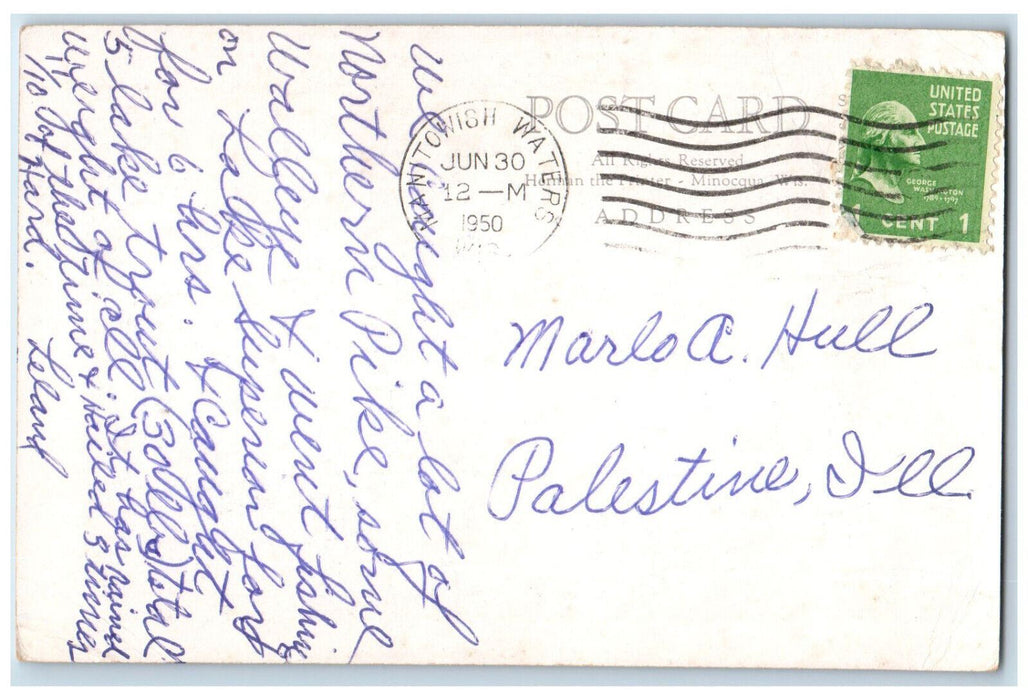 POST CARD
All Rights Reserved
Herman the Printer - Minocqua, Wis.
ADDRESS
MANITOWISH WATERS
JUN 30
12 - M
1950
WIS.
UNITED
STATES
POSTAGE
GEORGE
WASHINGTON
1789-1797
1 CENT 1
Marlo A. Hull
Palestine, Ill
We caught a lot of
Northern Pike, some
Walleye. I went fishing
on Lake Superior for
for 6 hrs. I caught
5 lake trout (30 lbs) total
weight of all. It has rained
1/10 of the time & Hailed 3 times
Hard. Leland